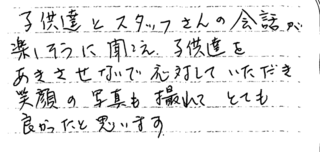 子供達とスタッフさんの会話が
楽しそうに聞こえ、子供達を
あきさせないで応対していただき
笑顔の写真も撮れて とても
良かったと思います